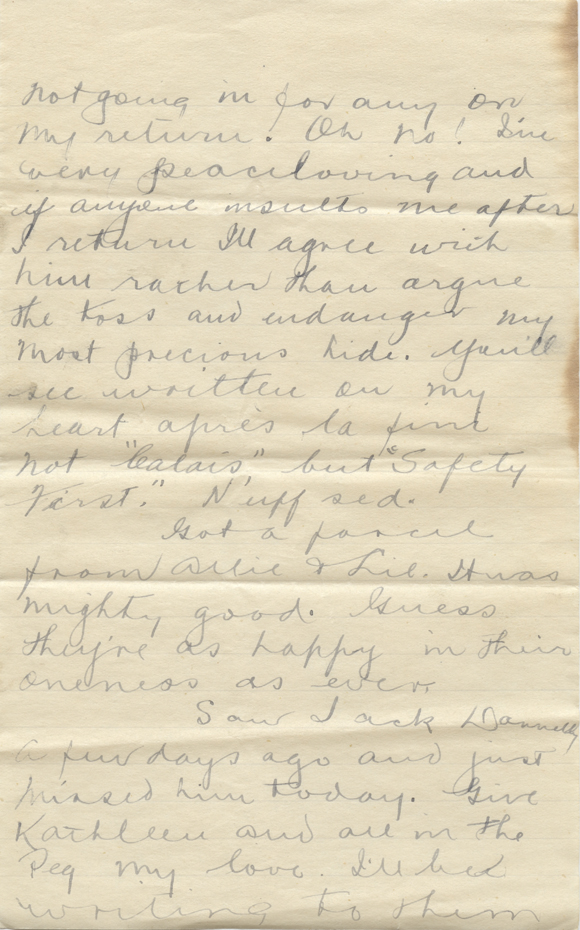 not going in for any on
my return. Oh no! I'm
very peaceloving and
if anyone insults me after
I return I'll agree with
him rather than argue
the toss and endanger my
most precious hide. You'll
see written on my
heart après la fini
not "Calais" but "Safety
First." N'uff sed.
Got a parcel
from Allie & Lil. It was
mighty good. Guess
they're as happy in their
oneness as ever.
Saw Jack Donnelly
a few days ago and just
missed him today. Give
Kathleen and all in the
Peg my love. I'll be
writing to them